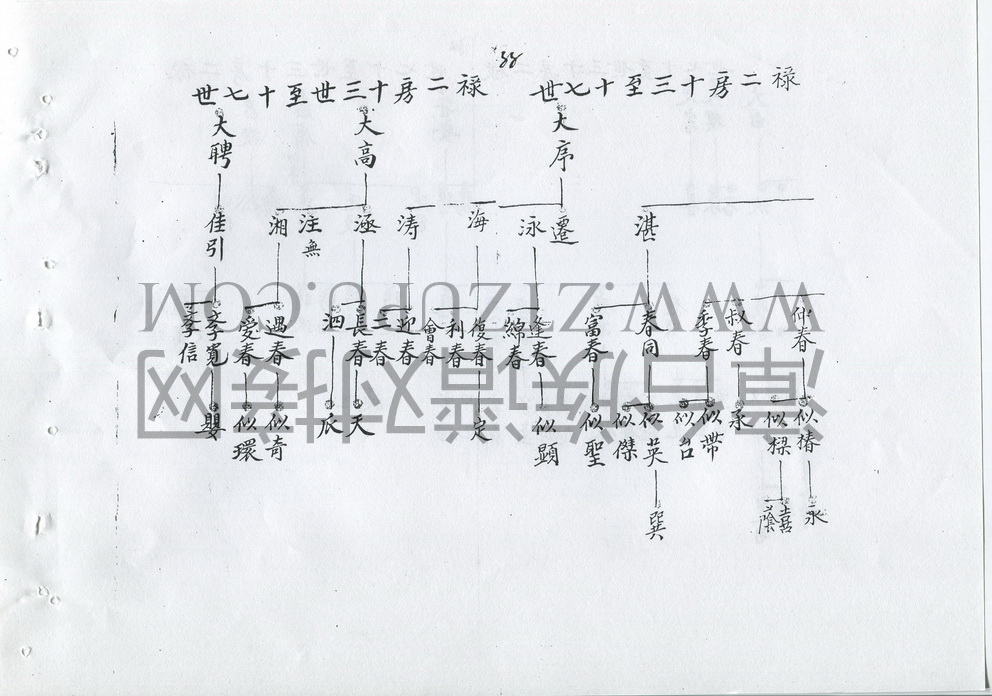 88
禄二房十三至十七世
禄二房十三世至十七世
大序
大高
大聘
湛
遷
泳
海
涛
涵
注無
湘
佳引
仲春
叔春
季春
春同
富春
逢春
綿春
復春
利春
會春
迎春
三春
長春
泗
遇春
愛春
季寬
季信
似椿
似樑
承
似帶
似台
似英
似傑
似聖
似顕
定
天
似奇
似環
嬰
永
蔭喜
巽
WWW.ZIZIZUPU.COM
漳台族谱对接网